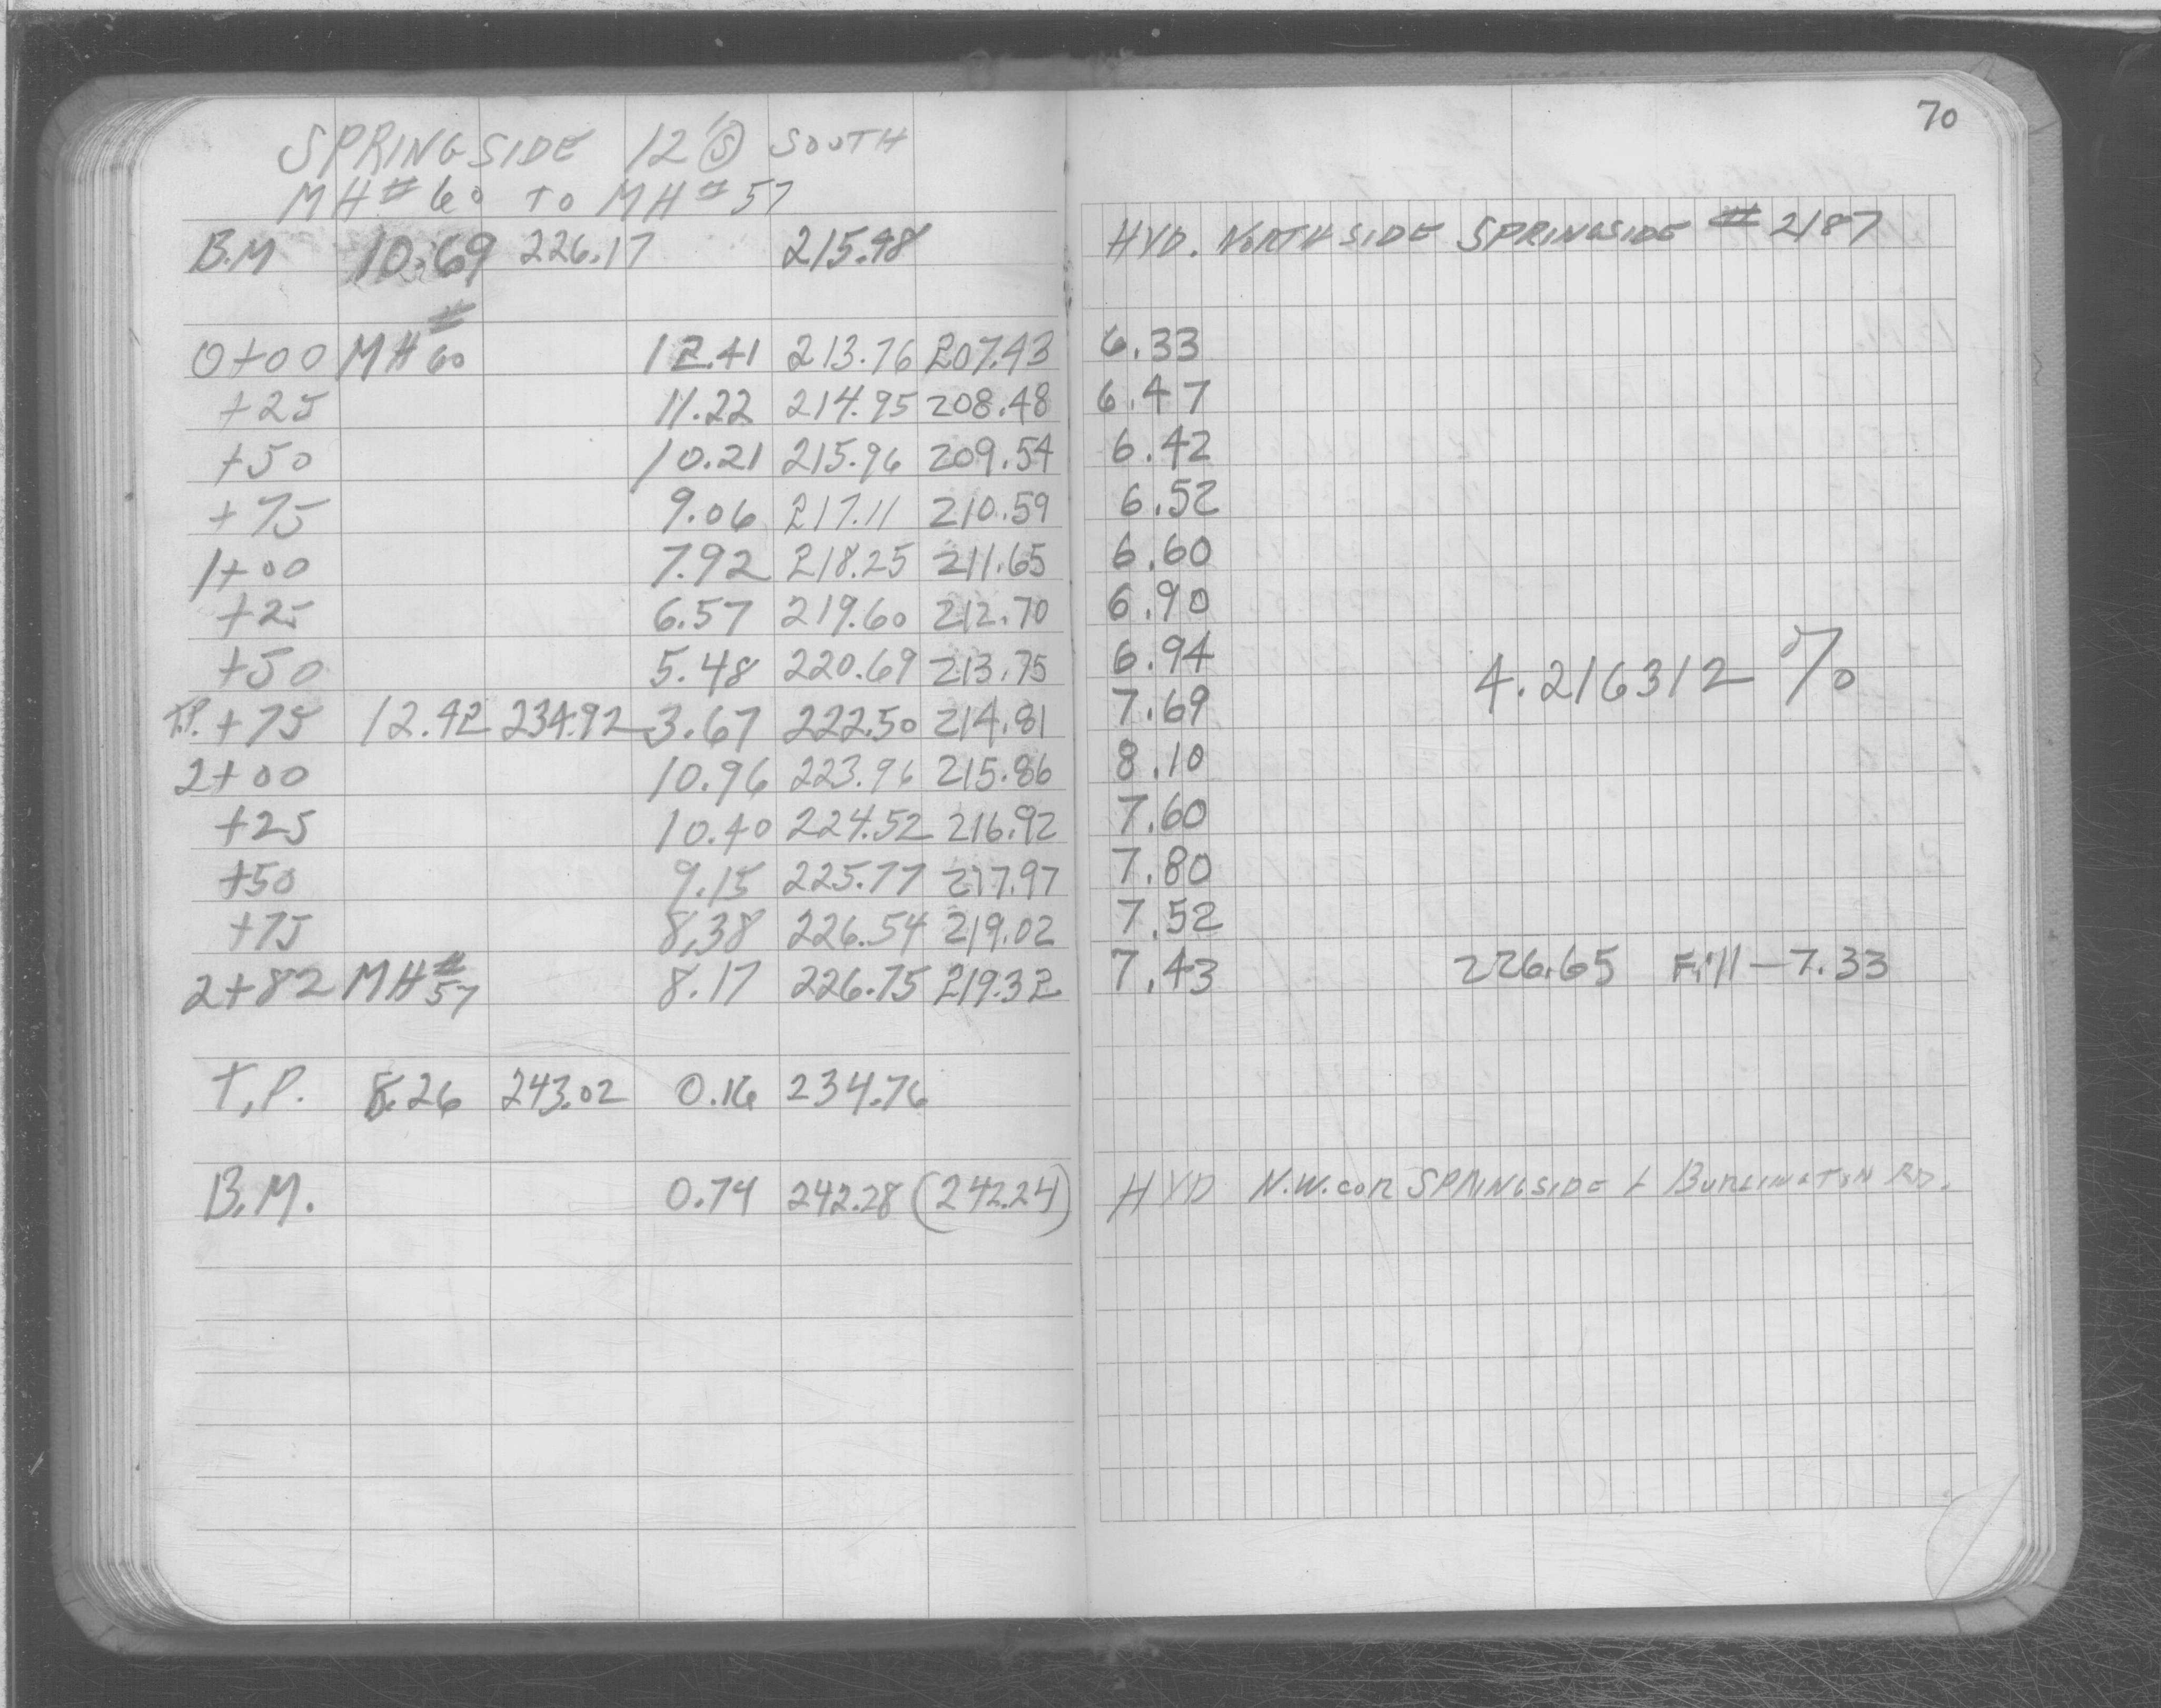 70
SPRINGSIDE 12' Ⓢ SOUTH
MH# 60 TO MH# 57
B.M 10.69 226.17 215.48 HYD. NORTH SIDE SPRINGSIDE # 2187
0+00 MH# 60 12.41 213.76 207.43 6.33
+25 11.22 214.95 208.48 6.47
+50 10.21 215.96 209.54 6.42
+75 9.06 217.11 210.59 6.52
1+00 7.92 218.25 211.65 6.60
+25 6.57 219.60 212.70 6.90
+50 5.48 220.69 213.75 6.94 4.216312 %
T.P. +75 12.42 234.92 3.67 222.50 214.81 7.69
2+00 10.96 223.96 215.86 8.10
+25 10.40 224.52 216.92 7.60
+50 9.15 225.77 217.97 7.80
+75 8.38 226.54 219.02 7.52
2+82 MH# 57 8.17 226.75 219.32 7.43 226.65 Fill - 7.33
T.P. 8.26 243.02 0.16 234.76
B.M. 0.74 242.28 (242.24) HYD N.W. COR SPRINGSIDE & BURLINGTON RD.